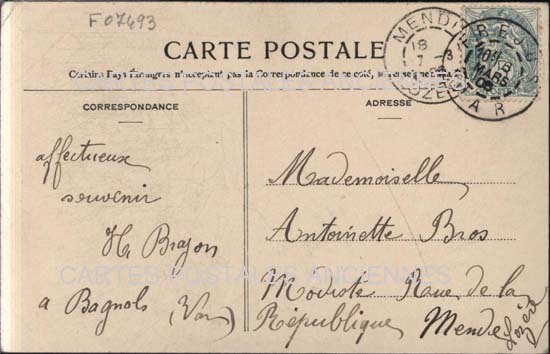 F07493
CARTE POSTALE
Certains Pays Étrangers n'acceptent pas la Correspondance de ce côté,
CORRESPONDANCE
affectueux
souvenir
H. Brajon
a Bagnols (Var)
ADRESSE
Mademoiselle
Antoinette Bros
Modiste Rue de la
République Mende
Lozère
MENDE
18
LOZÈRE
MARS
CARTES POSTALES ANCIENNES